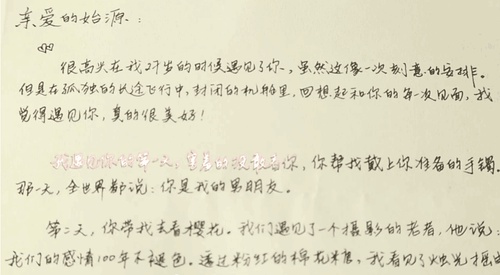 亲爱的始源:
很高兴在我27岁的时候遇见了你,虽然这像一次刻意的安排。
但是在孤独的长途飞行中,封闭的机舱里,回想起和你的第一次见面,我
觉得遇见你,真的很美好!
我遇见你的第一天,你帮我戴上你准备的手镯
那一天,全世界都说:你是我的男朋友。
第二天,你带我去看樱花。我们遇见了一个摄影的老者,他说:
我们的感情100年不褪色。透过粉红的棉花糖,我看见了烛光摇曳